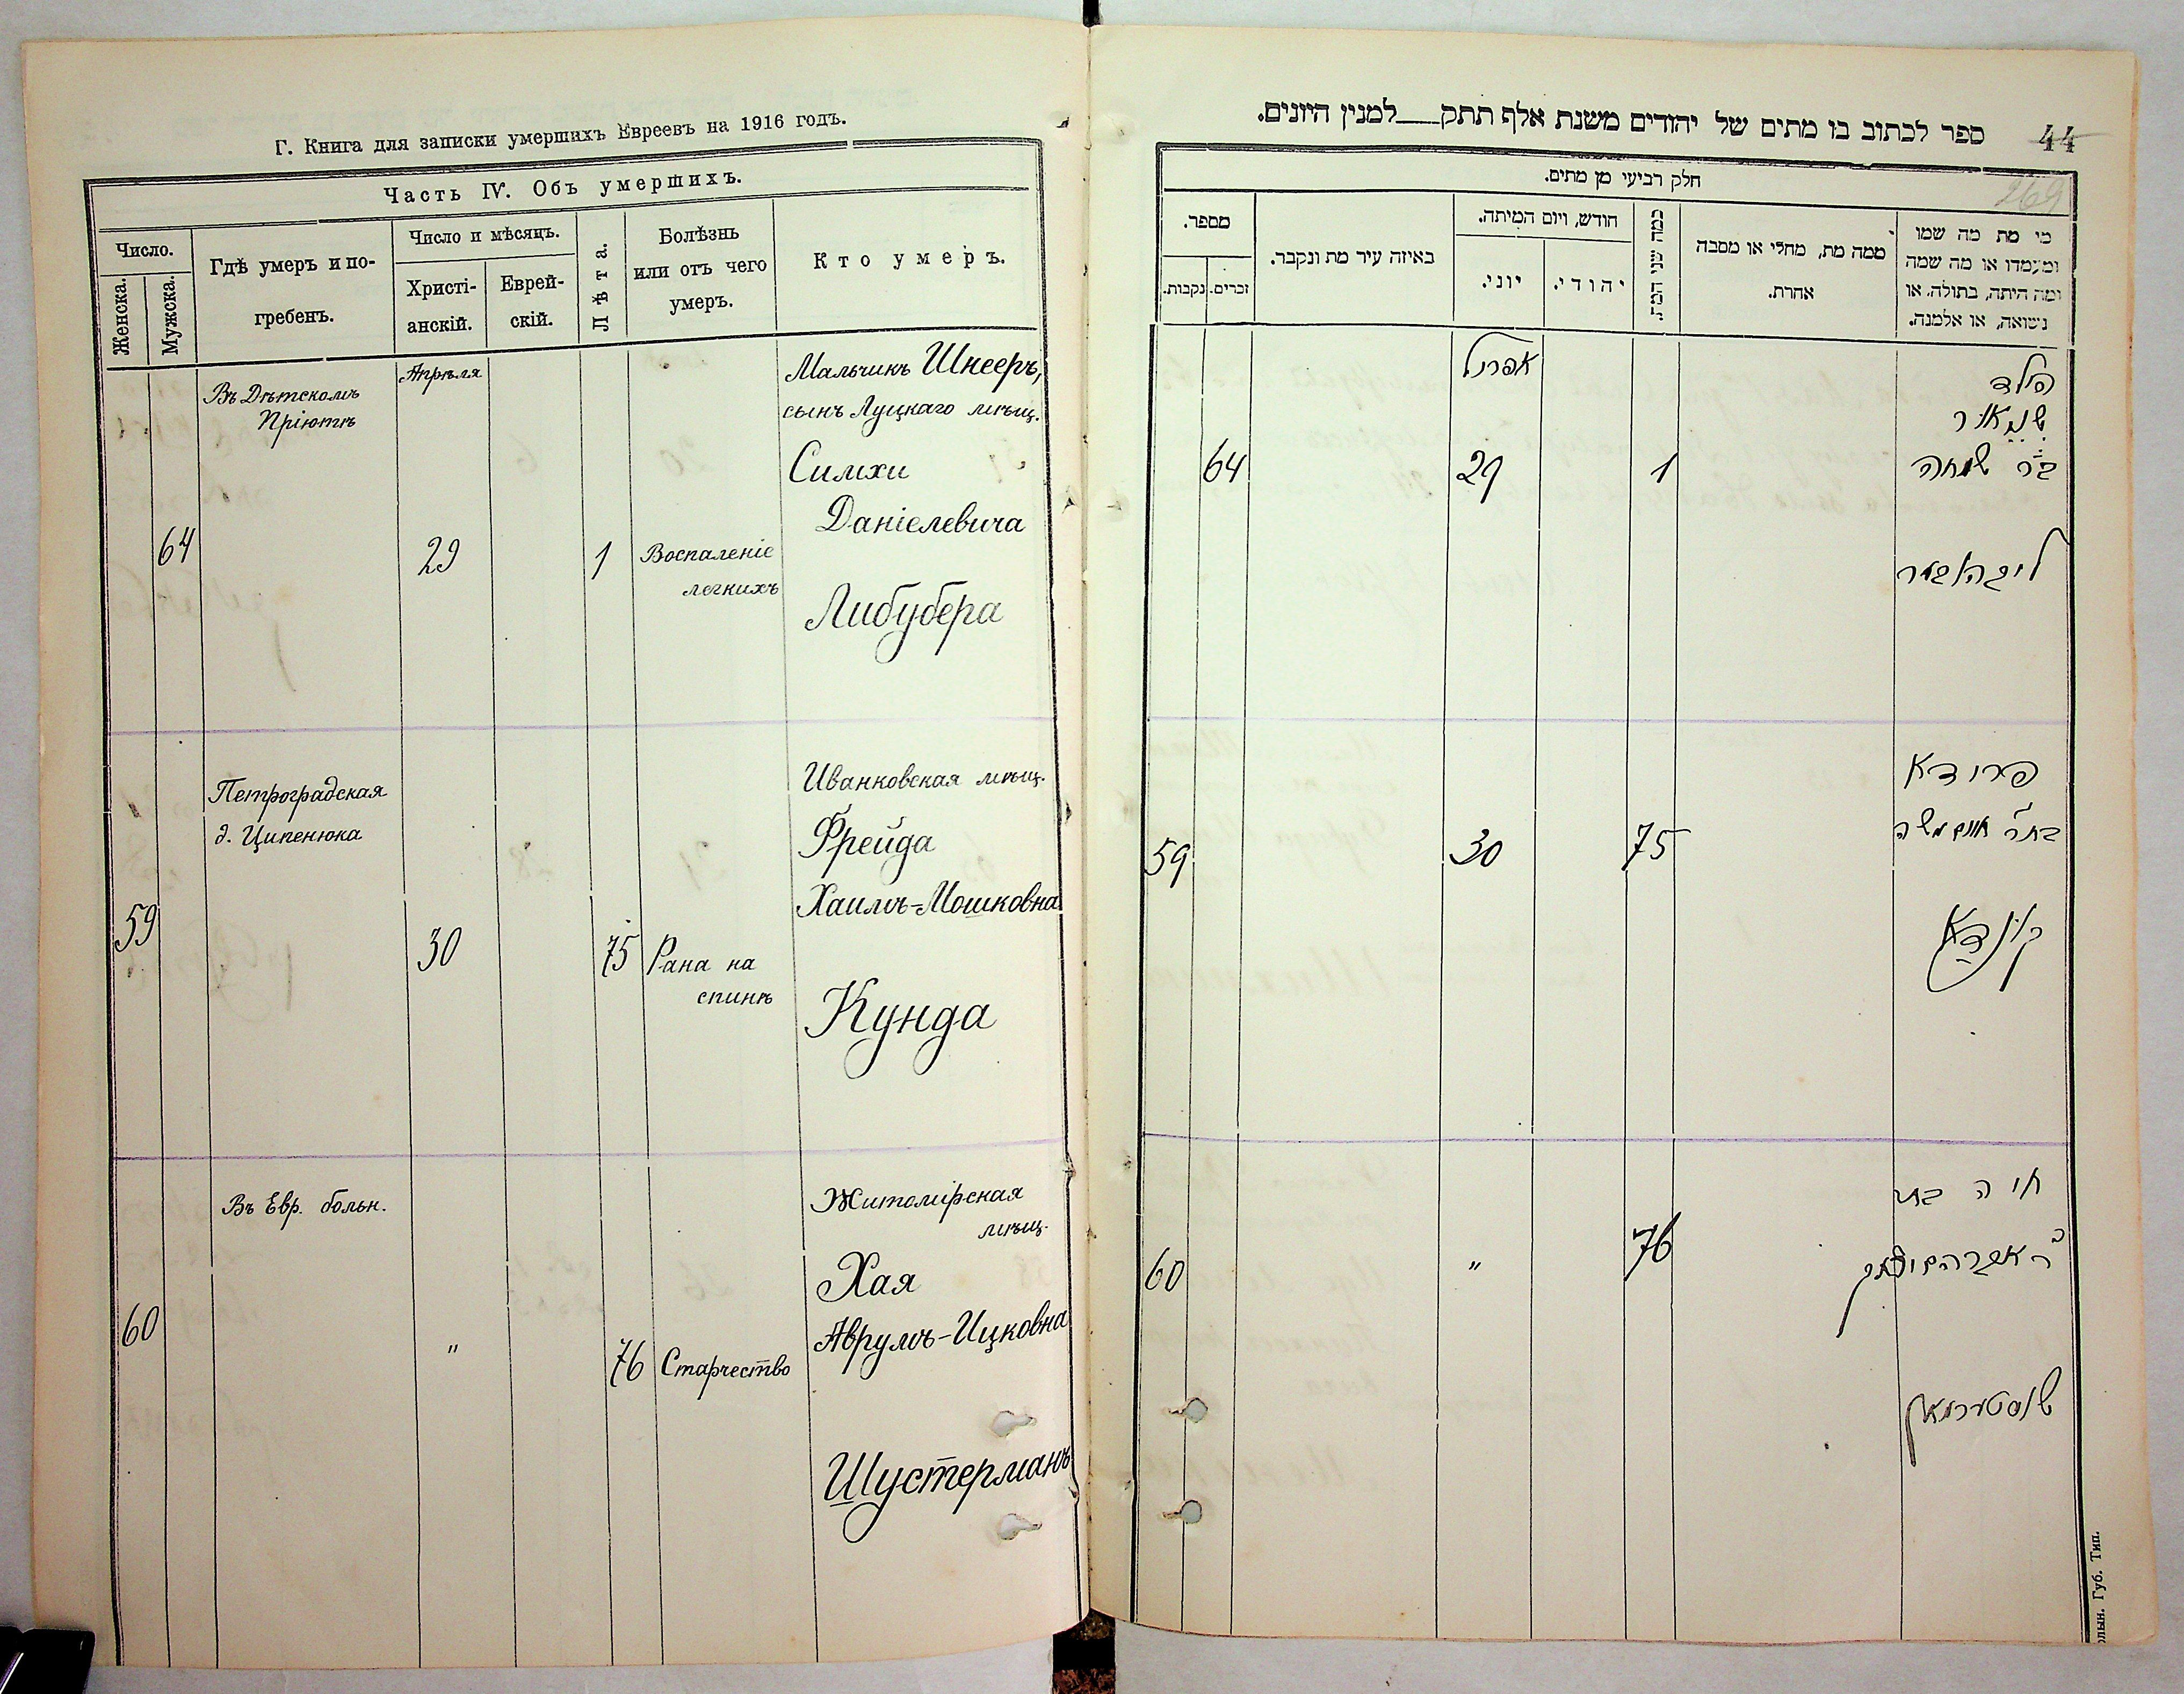 Г. Книга для записки умершихъ Евреевъ на 1916 годъ.
Часть IV. Объ умершихъ.
Число.
Женска.
Мужска.
Гдѣ умеръ и по-
гребенъ.
Число и мѣсяцъ.
Христі-
анскій.
Еврей-
скій.
Лѣта.
Болѣзнь
или отъ чего
умеръ.
Кто умеръ.
64
Въ Дѣтскомъ
Пріютѣ
Апрѣля
29
1
Воспаленіе
легкихъ
Мальчикъ Шнееръ,
сынъ Луцкаго мѣщ.
Симхи
Даніелевича
Либубера
59
Петроградская
д. Ципенюка
30
75
Рана на
спинѣ
Иванковская мѣщ.
Фрейда
Хаимъ-Мошковна
Кунда
60
Въ Евр. больн.
"
76
Старчество
Житомірская
мѣщ.
Хая
Аврумъ-Ицковна
Шустерманъ
44
269
ספר לכתוב בו מתים של יהודים משנת אלף תתק___למנין היונים.
חלק רביעי מן מתים.
מי מת מה שמו
ומעמדו או מה שמה
ומה היתה, בתולה, או
נישואה, או אלמנה.
ממה מת, מחלי או מסבה
אחרת.
כמה שני המת.
חודש, ויום המיתה.
יהודי.
יוני.
באיזה עיר מת ונקבר.
מספר.
זכרים.
נקבות.
הילד
שניאור
ב"ר שמחה
ליבהובער
1
אפריל
29
64
פרודא
בת"ר חיים משה
קונדא
75
30
59
חיה בת
ר' אברהם יצחק
שוסטערמאן
76
"
60
олын. Губ. Тип.